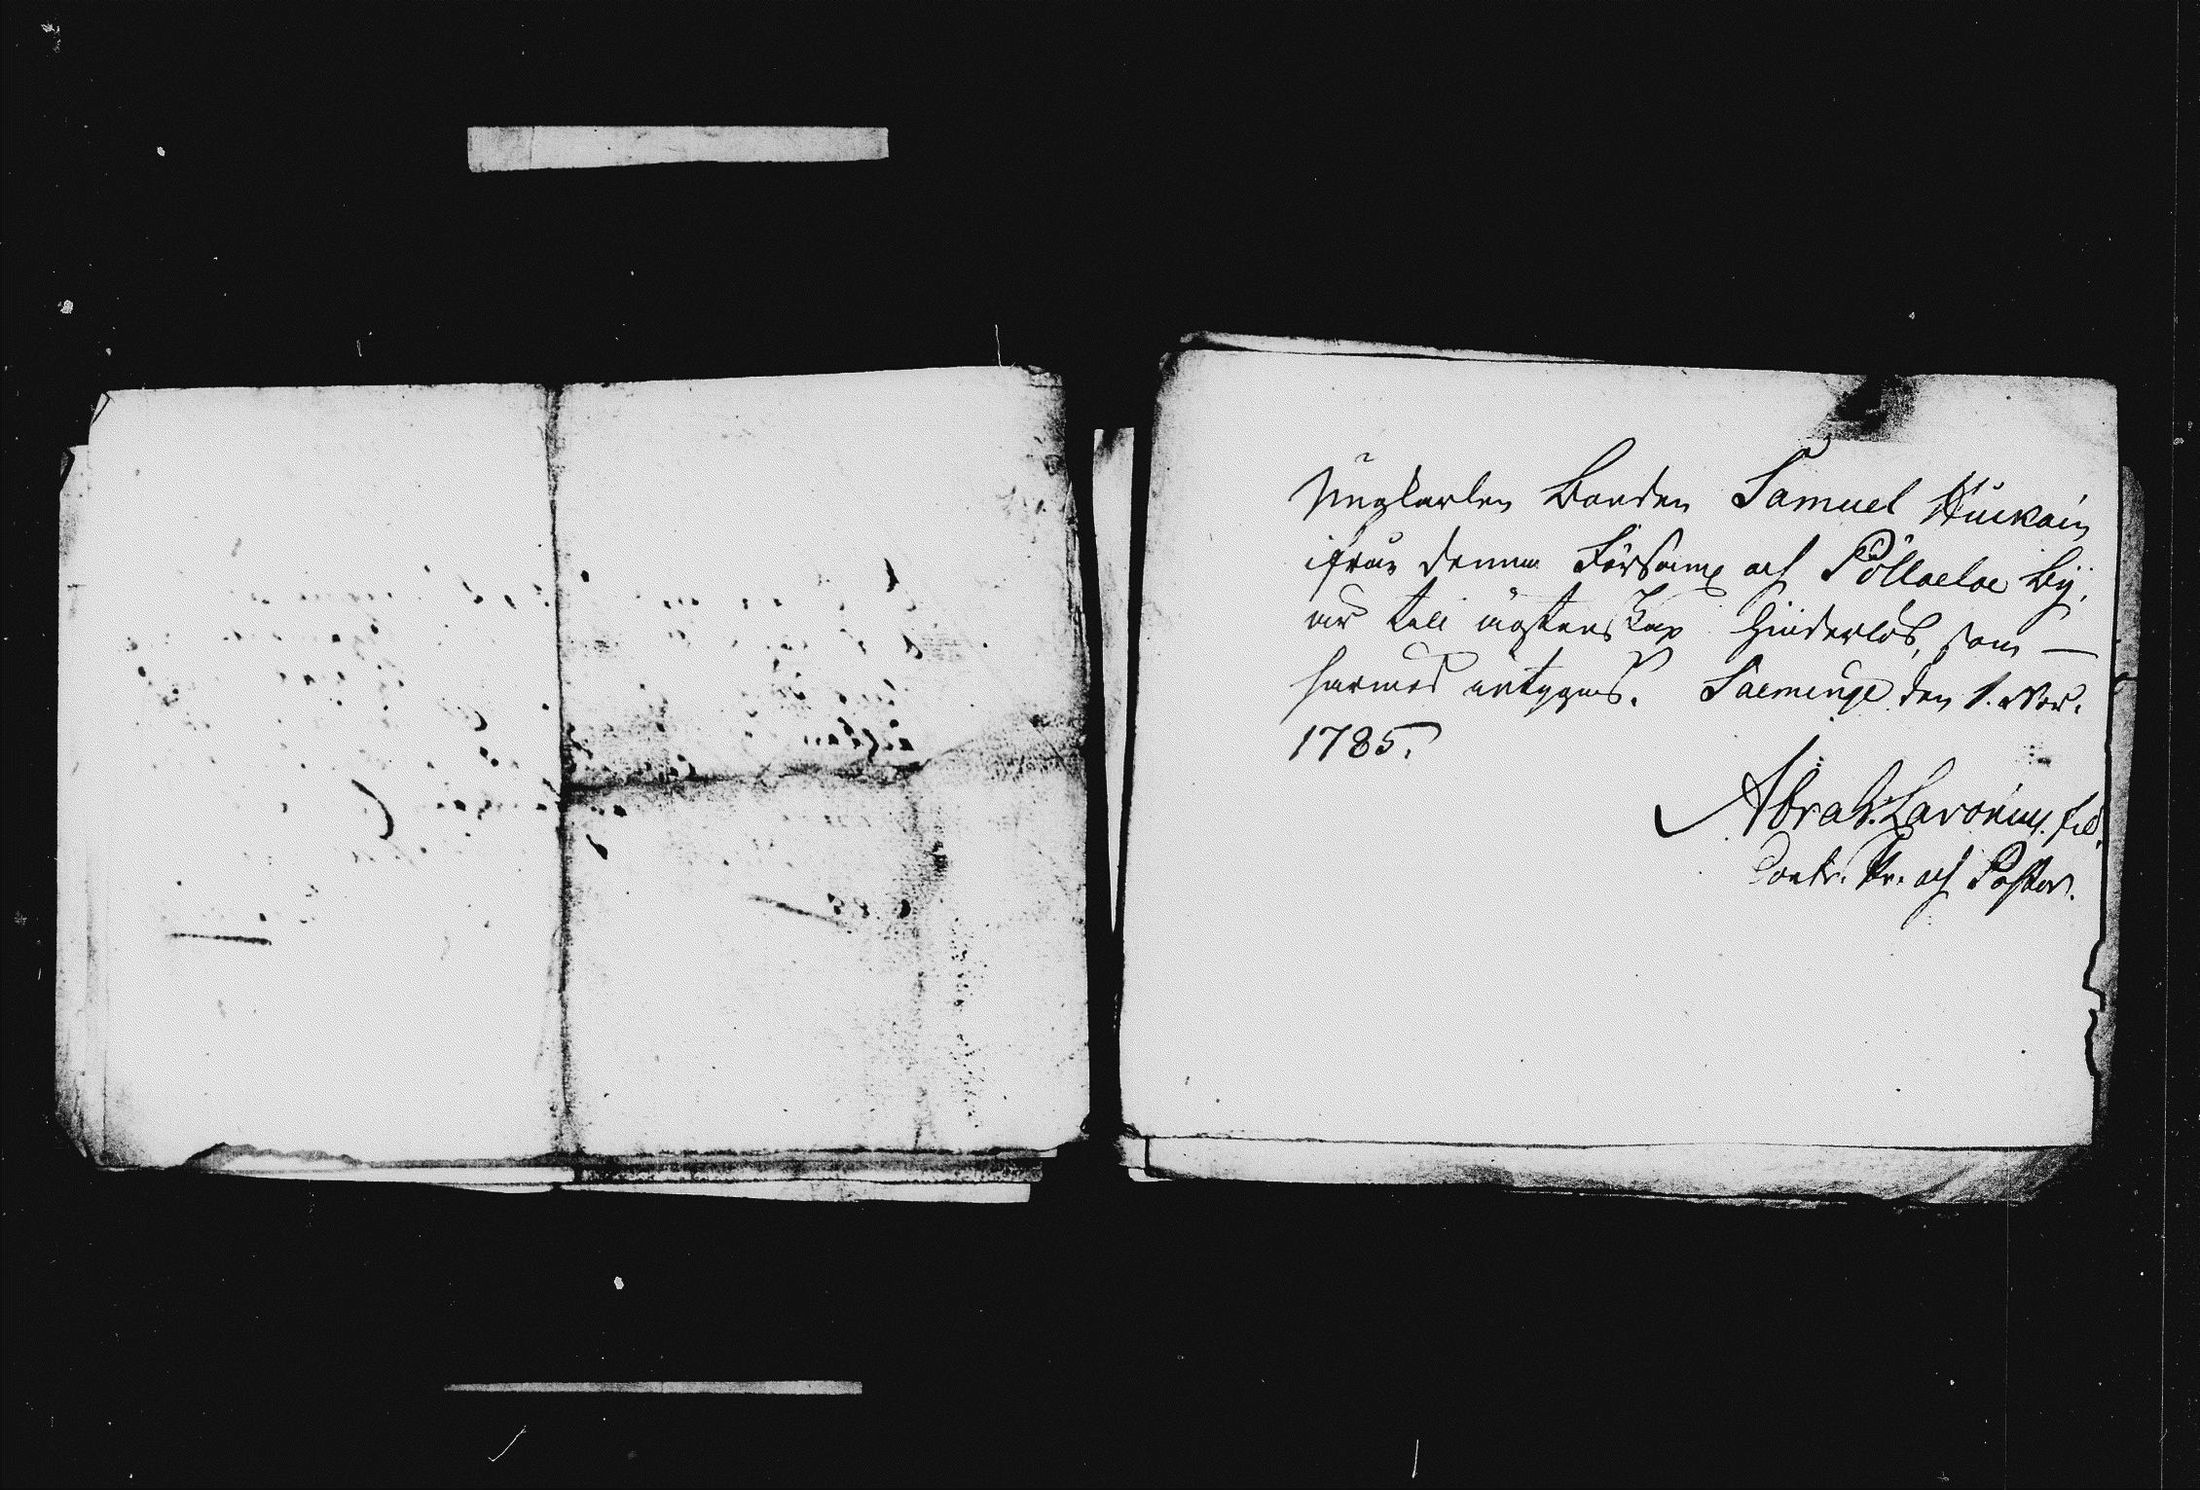 Ungkarlen Bonden Samuel Huckain
ifrån denna Församl och Pöllaelae by,
är till ägtenskap hinderlös, som —
härmed intygas. Saeminge den 1. Nov.
1785.
Abrah. Lavonius. fil
Contr. Pr. och Pastor.